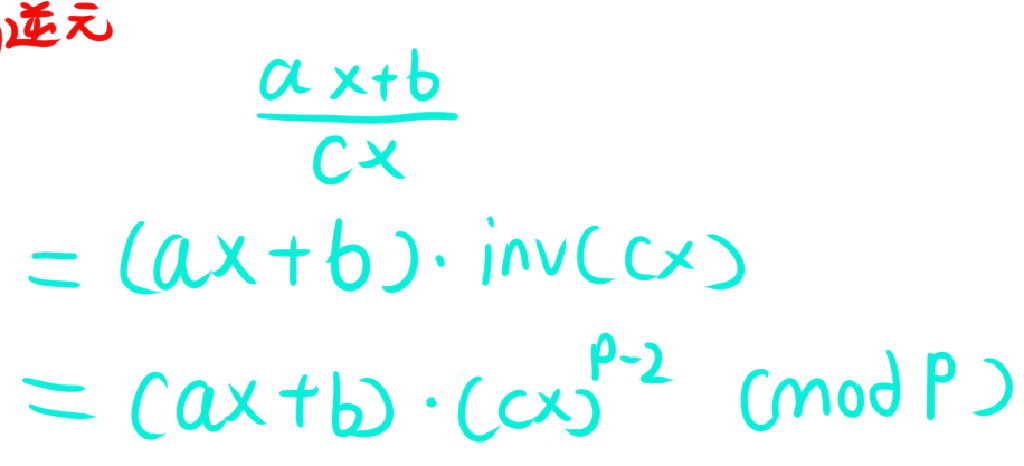 逆元
ax+b
cx
= (ax+b)·inv(cx)
= (ax+b)·(cx)^{p-2} (mod P)